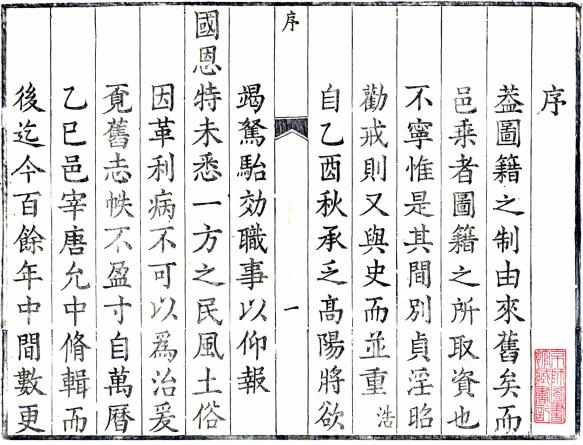 序
葢圖籍之制由來舊矣而
邑乘者圖籍之所取資也
不寧惟是其間別貞淫昭
勸戒則又與史而並重浩
自乙酉秋承乏高陽將欲
序
一
竭駑駘効職事以仰報
國恩特未悉一方之民風土俗
因革利病不可以爲治爰
覓舊志帙不盈寸自萬曆
乙巳邑宰唐允中脩輯而
後迄今百餘年中間數更